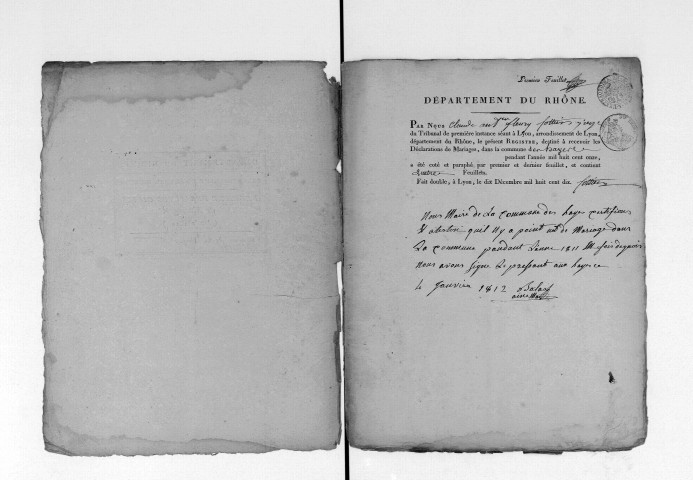 Premier Feuillet
DÉPARTEMENT DU RHÔNE.
PAR NOUS Claude m. fleury juge
du Tribunal de première instance séant à Lyon, arrondissement de Lyon,
département du Rhône, le présent REGISTRE, destiné à recevoir les
Déclarations de Mariages, dans la commune des hayes
pendant l'année mil huit cent onze,
a été coté et paraphé par premier et dernier feuillet, et contient
quatre Feuillets.
Fait double, à Lyon, le dix Décembre mil huit cent dix.
Nous Maire de La Commune des hayes certifions
& atestons quil Ny a point eut de Mariage dans
La commune pandant Lanne 1811 En foi de quoi
Nous avons signe Le pressant aux hayes ce
4 Janvier 1812